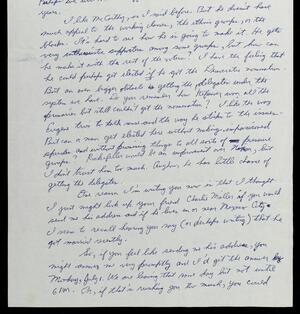 years.
I like McCarthy, as I said before. But he doesn't have
much appeal to the working classes, the ethnic groups, or the
blacks. It's hard to see how he is going to make it. He gets
very enthusiastic supporters among some groups, but how can
he make it with the rest of the voters? I have the feeling that
he could perhaps get elected if he got the Democratic nomination.
But an even bigger obstacle is getting the delegates under the
system we have. Do you remember how Kefauver won all the
primaries but still couldn't get the nomination? I like the way
Eugene tries to talk sense and the way he sticks to the issues.
But can a man get elected here without making impassioned
speeches and without promising things to all sorts of pressure
groups. Rockefeller would be an improvement over Nixon, but
I don't trust him too much. Anyhow, he has little chance of
getting the delegates.
One reason I'm writing you now is that I thought
I just might look up your friend Charles if you would
send me his address and if he lives in or near Mexico City.
I seem to recall hearing you say (or perhaps writing) that he
got married recently.
So, if you feel like sending me his address, you
might answer me very promptly and I'd get the answer by
Monday, July 1. We are leaving that same day but not until
6 P.M. Or, if that's rushing you too much, you could